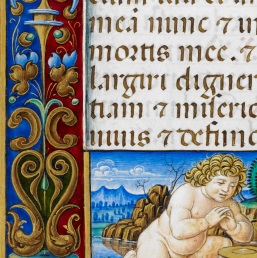 mea nunc ⁊ in
mortis mee. ⁊
largiri digner
tiam ⁊ miseric
nuis ⁊ defunc